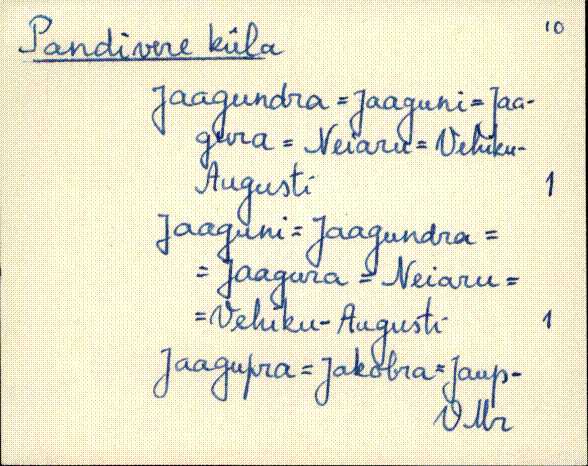 10
Pandivere küla
Jaagundra = Jaaguni = Jaa-
gura = Neiaru = Vehiku-
Augusti 1
Jaaguni = Jaagundra =
= Jaagura = Neiaru =
= Vehiku-Augusti 1
Jaagupra = Jakobra = Jaup-
VMr